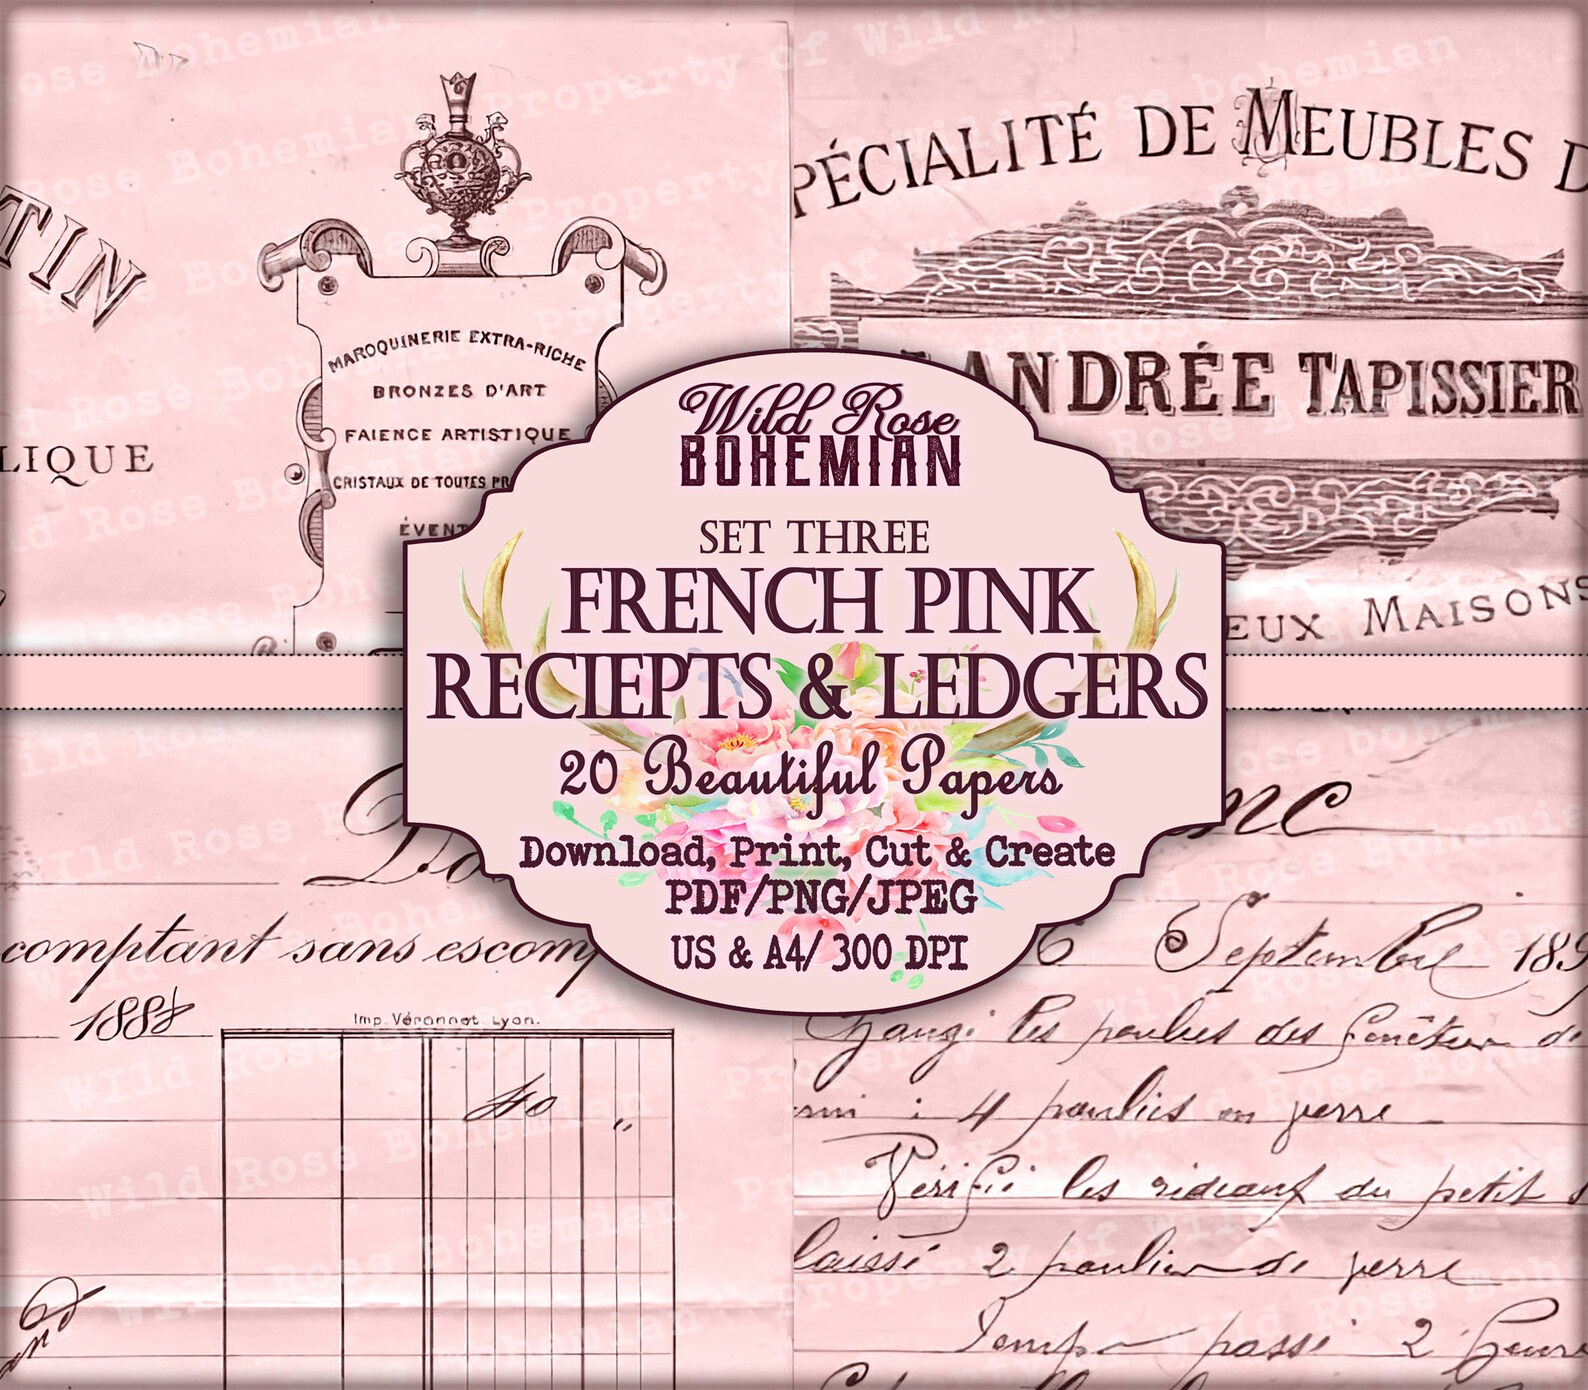 TIN
LIQUE
MAROQUINERIE EXTRA-RICHE
BRONZES D'ART
FAIENCE ARTISTIQUE
CRISTAUX DE TOUTES PR
ÉVENT
PÉCIALITÉ DE MEUBLES D
ANDRÉE TAPISSIER
EUX MAISONS
Wild Rose
BOHEMIAN
SET THREE
FRENCH PINK
RECIEPTS & LEDGERS
20 Beautiful Papers
Download, Print, Cut & Create
PDF/PNG/JPEG
US & A4/ 300 DPI
comptant sans escomp
1888
Imp. Véronnet Lyon.
40 "
nc
6 Septembre 189
les poulies des
4 poulies en verre
Vérifié les rideaux du petit
laissé 2 poulies de verre
Temps passé 2 heure
Property of Wild Rose Bohemian